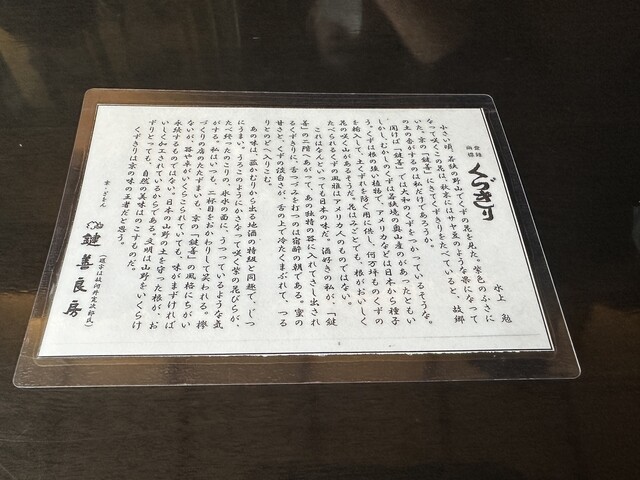 登録
商標
くづきり
水上 勉
小さい頃、若狭の野山でくずの花を見た。紫色のふさに
なって咲くこの花は、秋末にはサヤ豆のような果になって
いた。京の「鍵善」にきてくずきりをたべていると、故郷
の土の香がするのは私だけであろうか。
聞けば「鍵善」では大和のくずをつかっているそうな。
しかし、むかしのくずは若狭の奥山産のがあったともい
う。くずは根の強い植物で、アメリカなどは日本から種子
を輸入して、土くずれを防ぐ用に供し、何万坪ものくずの
花の咲く山があるそうだ。花はみごとでも、根がおいしく
たべられるくずの風雅はアメリカ人のものではない。
これはなんといっても日本の味だ。酒好きの私が、「鍵
善」の二階へあがって、あの独特の器に入れてさし出され
るくずきりに、舌つづみを打つのは宿酔の朝である。蜜の
甘さとくずの淡白さが、舌の上で冷たくまぶれて、つる
りとのどへ入りこむ。
あの味は、菰かむりから走る地酒の特級と同趣で、じつ
にうまい。うるこのようにかさなって咲く紫の花びらが、
たべ終ったのこりの、氷水の面に、うつっているような気
がする。私はいつも、二杯目をおかわりして笑われる。欅
づくりの店のたたずまいも、京の「鍵善」の風格にちがい
ないが、器や卓がいくらこられていても、味がまずければ
永続するものではない。日本の山野の土を守った根が、お
いしく加工されているからである。文明は山野をいくらけ
ずりとっても、自然の美味はのこすものだ。
くずきりは京の味の王者だと思う。
京・ぎをん
鍵善良房
(題字は故河井寛次郎氏)